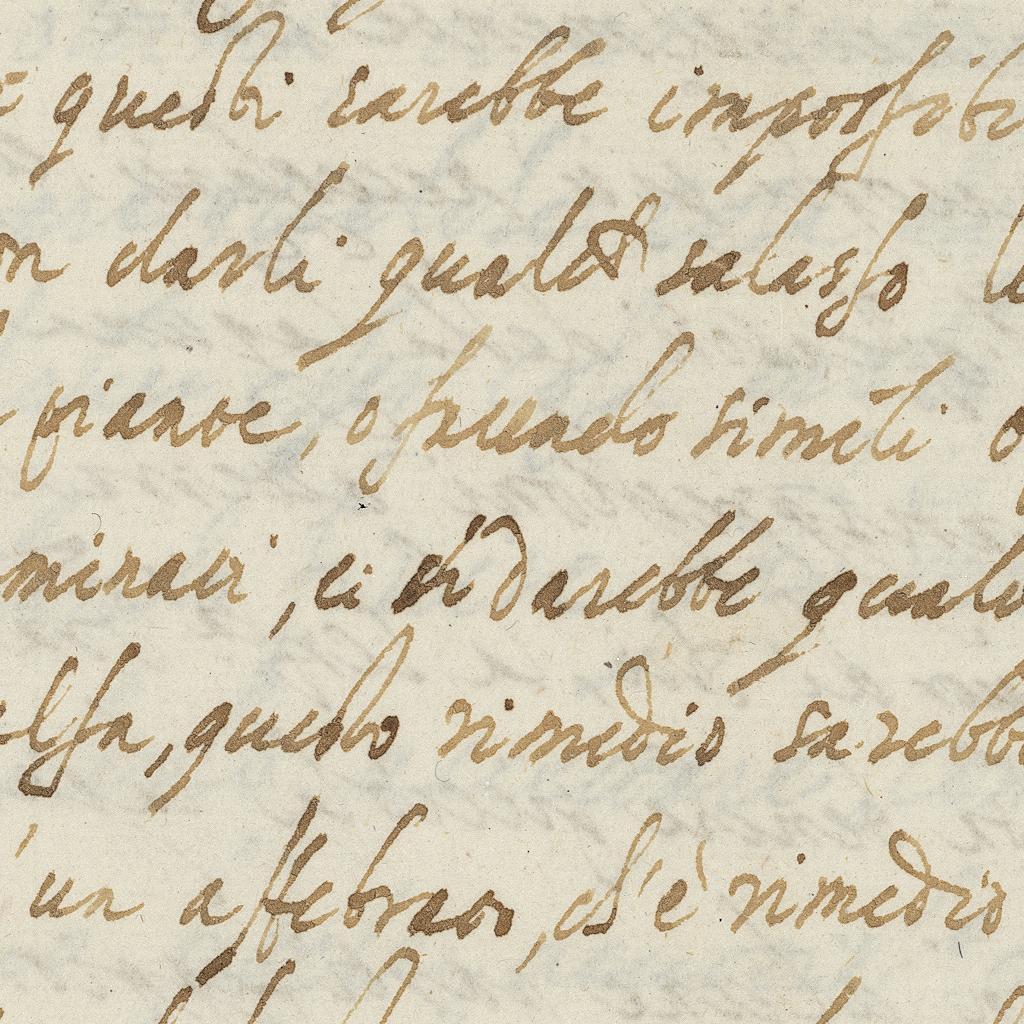 questi sarebbe impossibi
on darli qualch salasso
piante, o facendo simili
mirair, ci si darebbe qualc
alsa, questo rimedio sarebbe
un affebrato, ch'è rimedio